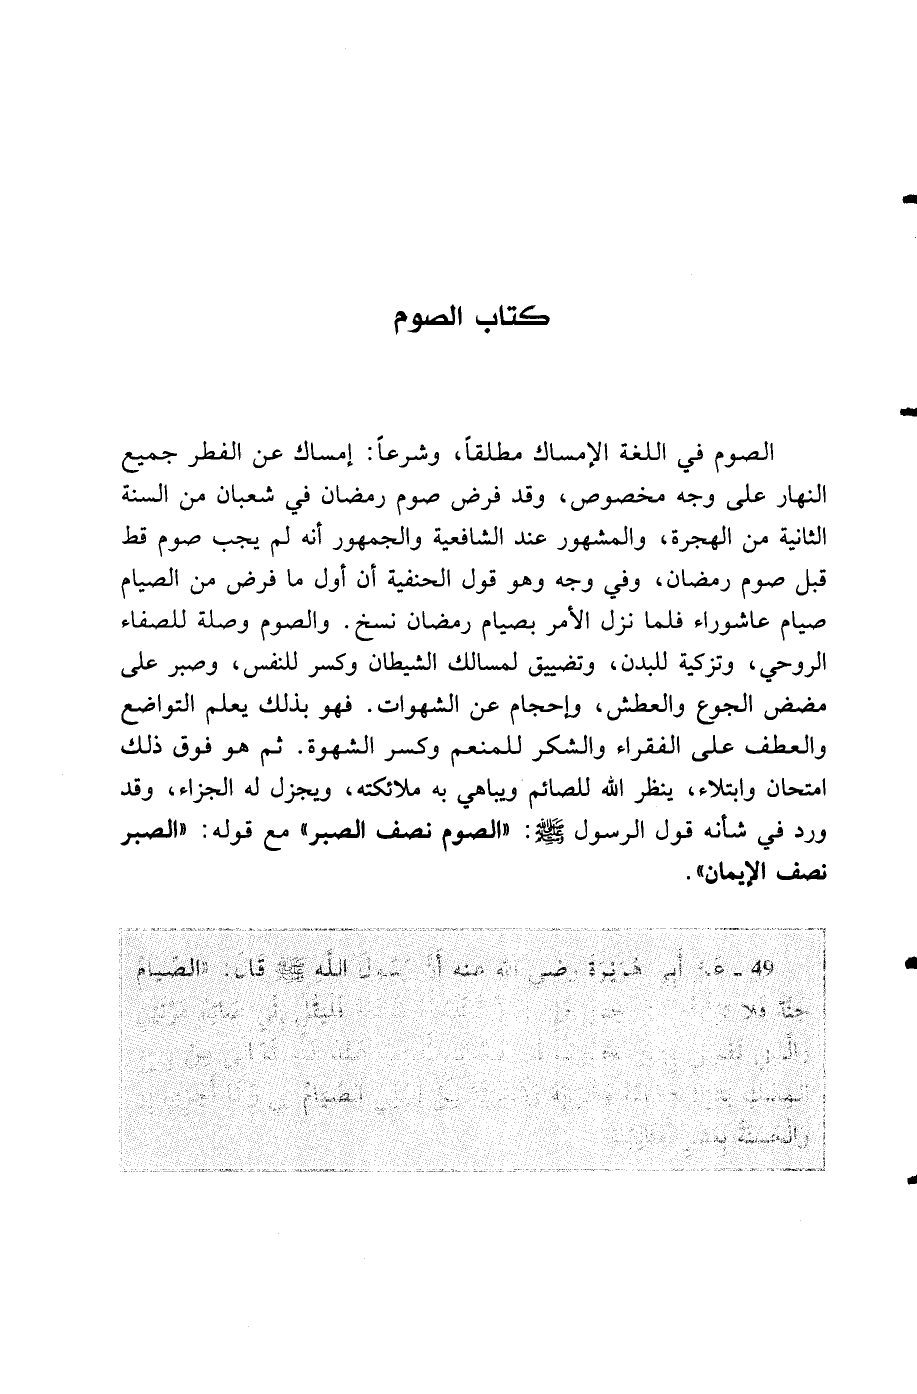 كتاب الصوم
الصوم في اللغة الإمساك مطلقاً، وشرعاً: إمساك عن الفطر جميع
النهار على وجه مخصوص، وقد فرض صوم رمضان في شعبان من السنة
الثانية من الهجرة، والمشهور عند الشافعية والجمهور أنه لم يجب صوم قط
قبل صوم رمضان، وفي وجه وهو قول الحنفية أن أول ما فرض من الصيام
صيام عاشوراء فلما نزل الأمر بصيام رمضان نسخ. والصوم وصلة للصفاء
الروحي، وتزكية للبدن، وتضييق لمسالك الشيطان وكسر للنفس، وصبر على
مضض الجوع والعطش، وإحجام عن الشهوات. فهو بذلك يعلم التواضع
والعطف على الفقراء والشكر للمنعم وكسر الشهوة. ثم هو فوق ذلك
امتحان وابتلاء، ينظر الله للصائم ويباهي به ملائكته، ويجزل له الجزاء، وقد
ورد في شأنه قول الرسول ﷺ: «الصوم نصف الصبر» مع قوله: «الصبر
نصف الإيمان».
49 ـ عن أبي هُرَيْرَة رضي الله عنه أنَّ رَسُولَ اللَّه ﷺ قال: «الصِّيامُ
جنَّة فلا
الصِّيَامُ
والْحَسَنَةُ